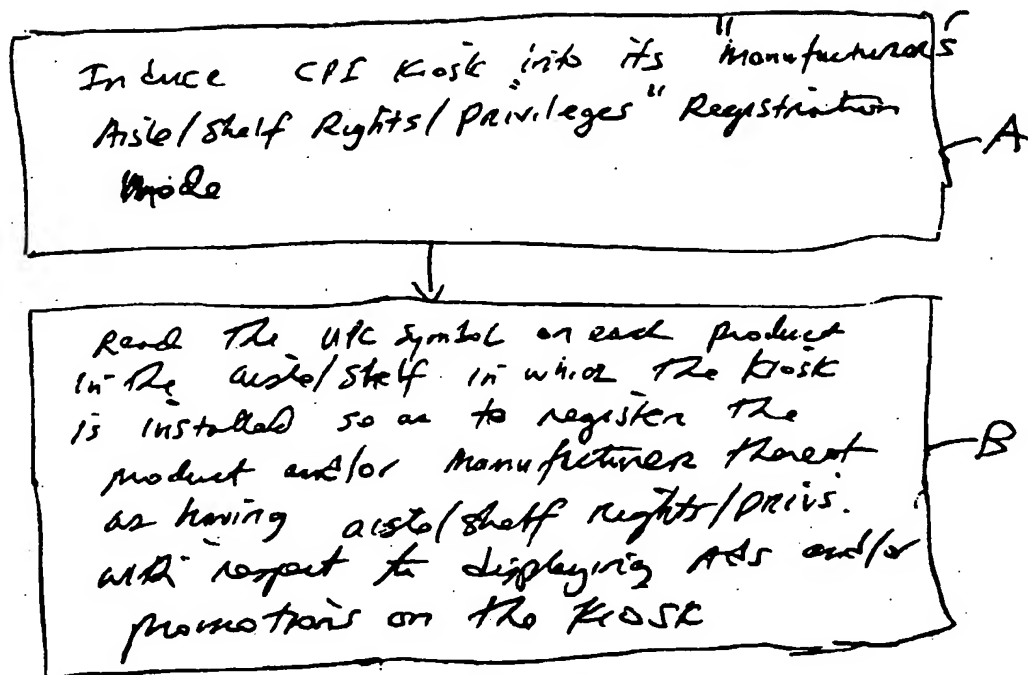 Induce CPI Kiosk into its "Manufacturers
Aisle/Shelf Rights/Privileges" Registration
Mode
A
Read the UPC symbol on each product
in the aisle/shelf in which the kiosk
is installed so as to register the
product and/or Manufacturer thereof
as having aisle/shelf rights/privs.
with respect to displaying Ads and/or
promotions on the Kiosk
B